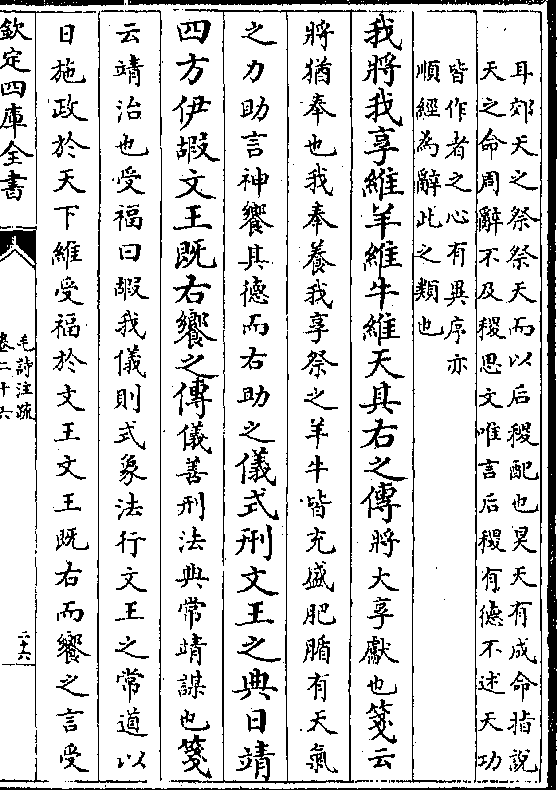 耳郊天之祭祭天而以后稷配也昊天有成命指說
天之命周辭不及稷思文唯言后稷有德不述天功
皆作者之心有異序亦
順經為辭此之類也
我將我享維羊維牛維天其右之傳將大享獻也箋云
將猶奉也我奉養我享祭之羊牛皆充盛肥腯有天氣
之力助言神饗其德而右助之儀式刑文王之典日靖
四方伊嘏文王既右饗之傳儀善刑法典常靖謀也箋
云靖治也受福曰嘏我儀則式象法行文王之常道以
日施政於天下維受福於文王文王既右而饗之言受
欽定四庫全書
毛詩注疏
卷二十六
二十六